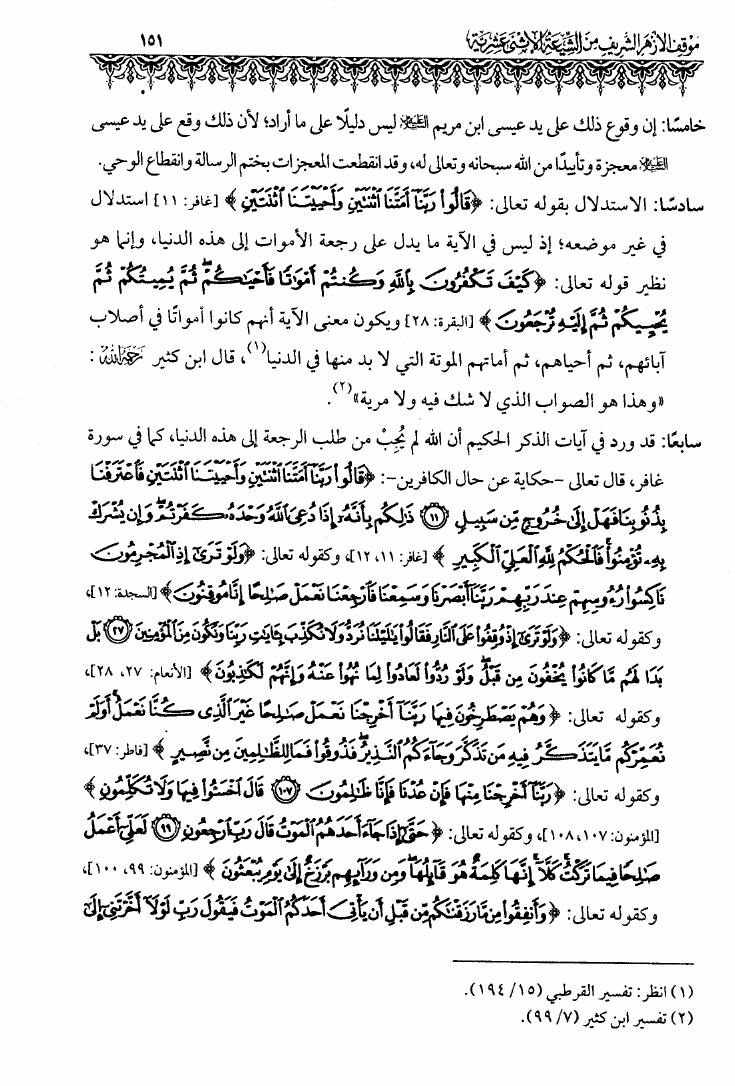 موقف الأزهر الشريف من الشيعة الاثنى عشرية
١٥١
خامسًا: إن وقوع ذلك على يد عيسى ابن مريم عليه السلام ليس دليلًا على ما أراد؛ لأن ذلك وقع على يد عيسى
عليه السلام معجزة وتأييدًا من الله سبحانه وتعالى له، وقد انقطعت المعجزات بختم الرسالة وانقطاع الوحي.
سادسًا: الاستدلال بقوله تعالى: ﴿قَالُوا۟ رَبَّنَآ أَمَتَّنَا ٱثْنَتَيْنِ وَأَحْيَيْتَنَا ٱثْنَتَيْنِ﴾ [غافر: ١١] استدلال
في غير موضعه؛ إذ ليس في الآية ما يدل على رجعة الأموات إلى هذه الدنيا، وإنما هو
نظير قوله تعالى: ﴿كَيْفَ تَكْفُرُونَ بِٱللَّهِ وَكُنتُمْ أَمْوَٰتًا فَأَحْيَـٰكُمْ ۖ ثُمَّ يُمِيتُكُمْ ثُمَّ
يُحْيِيكُمْ ثُمَّ إِلَيْهِ تُرْجَعُونَ﴾ [البقرة: ٢٨] ويكون معنى الآية أنهم كانوا أمواتًا في أصلاب
آبائهم، ثم أحياهم، ثم أماتهم الموتة التي لا بد منها في الدنيا(١)، قال ابن كثير رحمه الله:
«وهذا هو الصواب الذي لا شك فيه ولا مرية»(٢).
سابعًا: قد ورد في آيات الذكر الحكيم أن الله لم يُجِبْ من طلب الرجعة إلى هذه الدنيا، كما في سورة
غافر، قال تعالى -حكاية عن حال الكافرين-: ﴿قَالُوا۟ رَبَّنَآ أَمَتَّنَا ٱثْنَتَيْنِ وَأَحْيَيْتَنَا ٱثْنَتَيْنِ فَٱعْتَرَفْنَا
بِذُنُوبِنَا فَهَلْ إِلَىٰ خُرُوجٍ مِّن سَبِيلٍ ١١ ذَٰلِكُم بِأَنَّهُۥٓ إِذَا دُعِىَ ٱللَّهُ وَحْدَهُۥ كَفَرْتُمْ ۖ وَإِن يُشْرَكْ
بِهِۦ تُؤْمِنُوا۟ ۚ فَٱلْحُكْمُ لِلَّهِ ٱلْعَلِىِّ ٱلْكَبِيرِ﴾ [غافر: ١١، ١٢]، وكقوله تعالى: ﴿وَلَوْ تَرَىٰٓ إِذِ ٱلْمُجْرِمُونَ
نَاكِسُوا۟ رُءُوسِهِمْ عِندَ رَبِّهِمْ رَبَّنَآ أَبْصَرْنَا وَسَمِعْنَا فَٱرْجِعْنَا نَعْمَلْ صَـٰلِحًا إِنَّا مُوقِنُونَ﴾ [السجدة: ١٢]،
وكقوله تعالى: ﴿وَلَوْ تَرَىٰٓ إِذْ وُقِفُوا۟ عَلَى ٱلنَّارِ فَقَالُوا۟ يَـٰلَيْتَنَا نُرَدُّ وَلَا نُكَذِّبَ بِـَٔايَـٰتِ رَبِّنَا وَنَكُونَ مِنَ ٱلْمُؤْمِنِينَ ٢٧ بَلْ
بَدَا لَهُم مَّا كَانُوا۟ يُخْفُونَ مِن قَبْلُ ۖ وَلَوْ رُدُّوا۟ لَعَادُوا۟ لِمَا نُهُوا۟ عَنْهُ وَإِنَّهُمْ لَكَـٰذِبُونَ﴾ [الأنعام: ٢٧، ٢٨]،
وكقوله تعالى: ﴿وَهُمْ يَصْطَرِخُونَ فِيهَا رَبَّنَآ أَخْرِجْنَا نَعْمَلْ صَـٰلِحًا غَيْرَ ٱلَّذِى كُنَّا نَعْمَلُ ۚ أَوَلَمْ
نُعَمِّرْكُم مَّا يَتَذَكَّرُ فِيهِ مَن تَذَكَّرَ وَجَآءَكُمُ ٱلنَّذِيرُ ۖ فَذُوقُوا۟ فَمَا لِلظَّـٰلِمِينَ مِن نَّصِيرٍ﴾ [فاطر: ٣٧]،
وكقوله تعالى: ﴿رَبَّنَآ أَخْرِجْنَا مِنْهَا فَإِنْ عُدْنَا فَإِنَّا ظَـٰلِمُونَ ١٠٧ قَالَ ٱخْسَـُٔوا۟ فِيهَا وَلَا تُكَلِّمُونِ﴾
[المؤمنون: ١٠٧، ١٠٨]، وكقوله تعالى: ﴿حَتَّىٰٓ إِذَا جَآءَ أَحَدَهُمُ ٱلْمَوْتُ قَالَ رَبِّ ٱرْجِعُونِ ٩٩ لَعَلِّىٓ أَعْمَلُ
صَـٰلِحًا فِيمَا تَرَكْتُ ۚ كَلَّآ ۚ إِنَّهَا كَلِمَةٌ هُوَ قَآئِلُهَا ۖ وَمِن وَرَآئِهِم بَرْزَخٌ إِلَىٰ يَوْمِ يُبْعَثُونَ﴾ [المؤمنون: ٩٩، ١٠٠]،
وكقوله تعالى: ﴿وَأَنفِقُوا۟ مِن مَّا رَزَقْنَـٰكُم مِّن قَبْلِ أَن يَأْتِىَ أَحَدَكُمُ ٱلْمَوْتُ فَيَقُولَ رَبِّ لَوْلَآ أَخَّرْتَنِىٓ إِلَىٰٓ
(١) انظر: تفسير القرطبي (١٥/ ١٩٤).
(٢) تفسير ابن كثير (٧/ ٩٩).